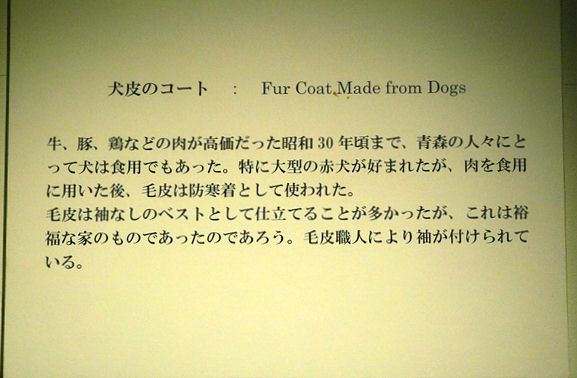 犬皮のコート : Fur Coat Made from Dogs
牛、豚、鶏などの肉が高価だった昭和 30 年頃まで、青森の人々にと
って犬は食用でもあった。特に大型の赤犬が好まれたが、肉を食用
に用いた後、毛皮は防寒着として使われた。
毛皮は袖なしのベストとして仕立てることが多かったが、これは裕
福な家のものであったのであろう。毛皮職人により袖が付けられて
いる。